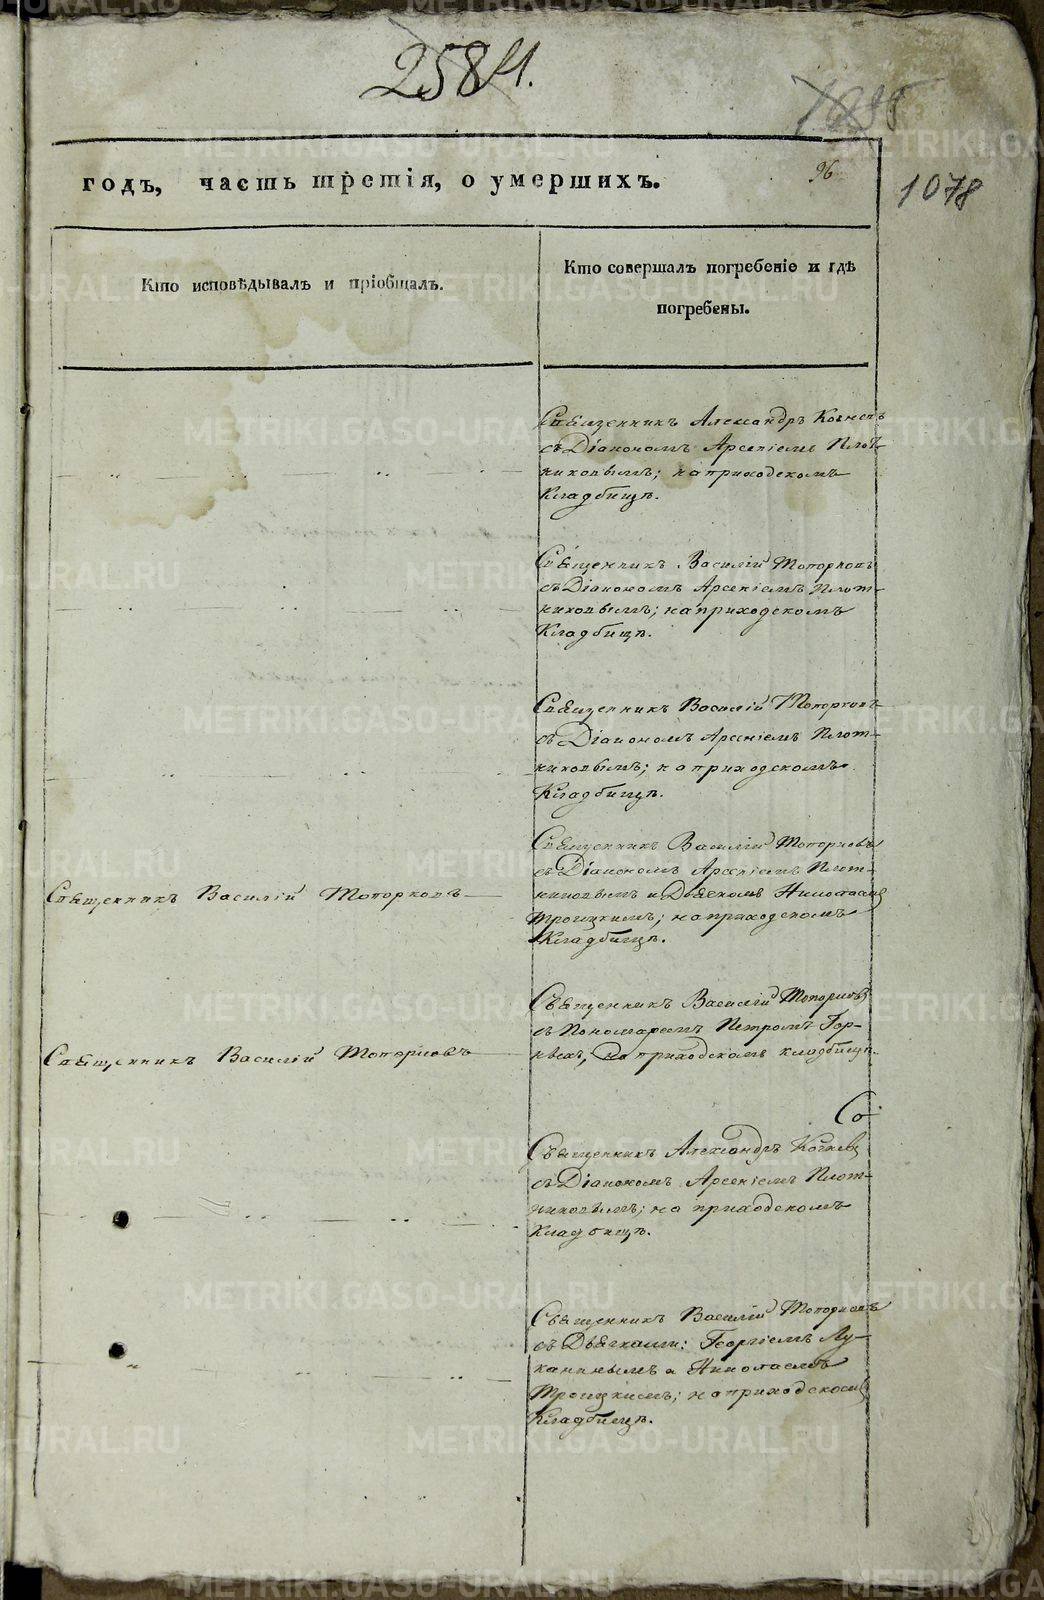 2584.
1078
96
годъ, часть третія, о умершихъ.
Кто исповѣдывалъ и пріобщалъ.
Кто совершалъ погребеніе и гдѣ
погребены.
Священникъ Александръ
съ Діакономъ Арсеніемъ Плот-
никовымъ; на приходскомъ
Кладбищѣ.
Священникъ Василій Топорковъ
съ Діакономъ Арсеніемъ Плот-
никовымъ; на приходскомъ
Кладбищѣ.
Священникъ Василій Топорковъ
съ Діакономъ Арсеніемъ Плот-
никовымъ; на приходскомъ
Кладбищѣ.
Священникъ Василій Топорковъ
Священникъ Василій Топорковъ
съ Діакономъ Арсеніемъ Плот-
никовымъ и Дьячкомъ Николаемъ
Троицкимъ; на приходскомъ
Кладбищѣ.
Священникъ Василій Топорковъ
Священникъ Василій Топорковъ
съ Пономаремъ Петромъ Гор-
на приходскомъ кладбищѣ.
Со
Священникъ Александръ
съ Діакономъ Арсеніемъ Плот-
никовымъ; на приходскомъ
Кладбищѣ.
Священникъ Василій Топорковъ
съ Дьячками: Георгіемъ Лу-
канинымъ и Николаемъ
Троицкимъ; на приходскомъ
Кладбищѣ.
METRIKI.GASO-URAL.RU